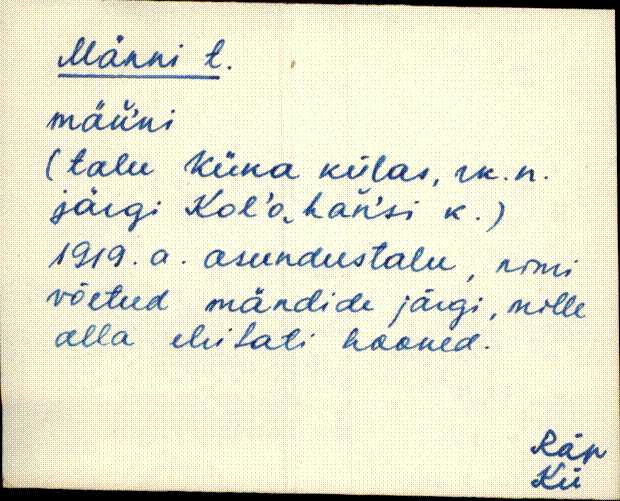 Männi t.
mäńńi
(talu Küka külas, rk. n.
järgi Kol'o‿hań'si k.)
1919. a. asundustalu, nimi
võetud mändide järgi, mille
alla ehitati hooned.
Räp
Kü